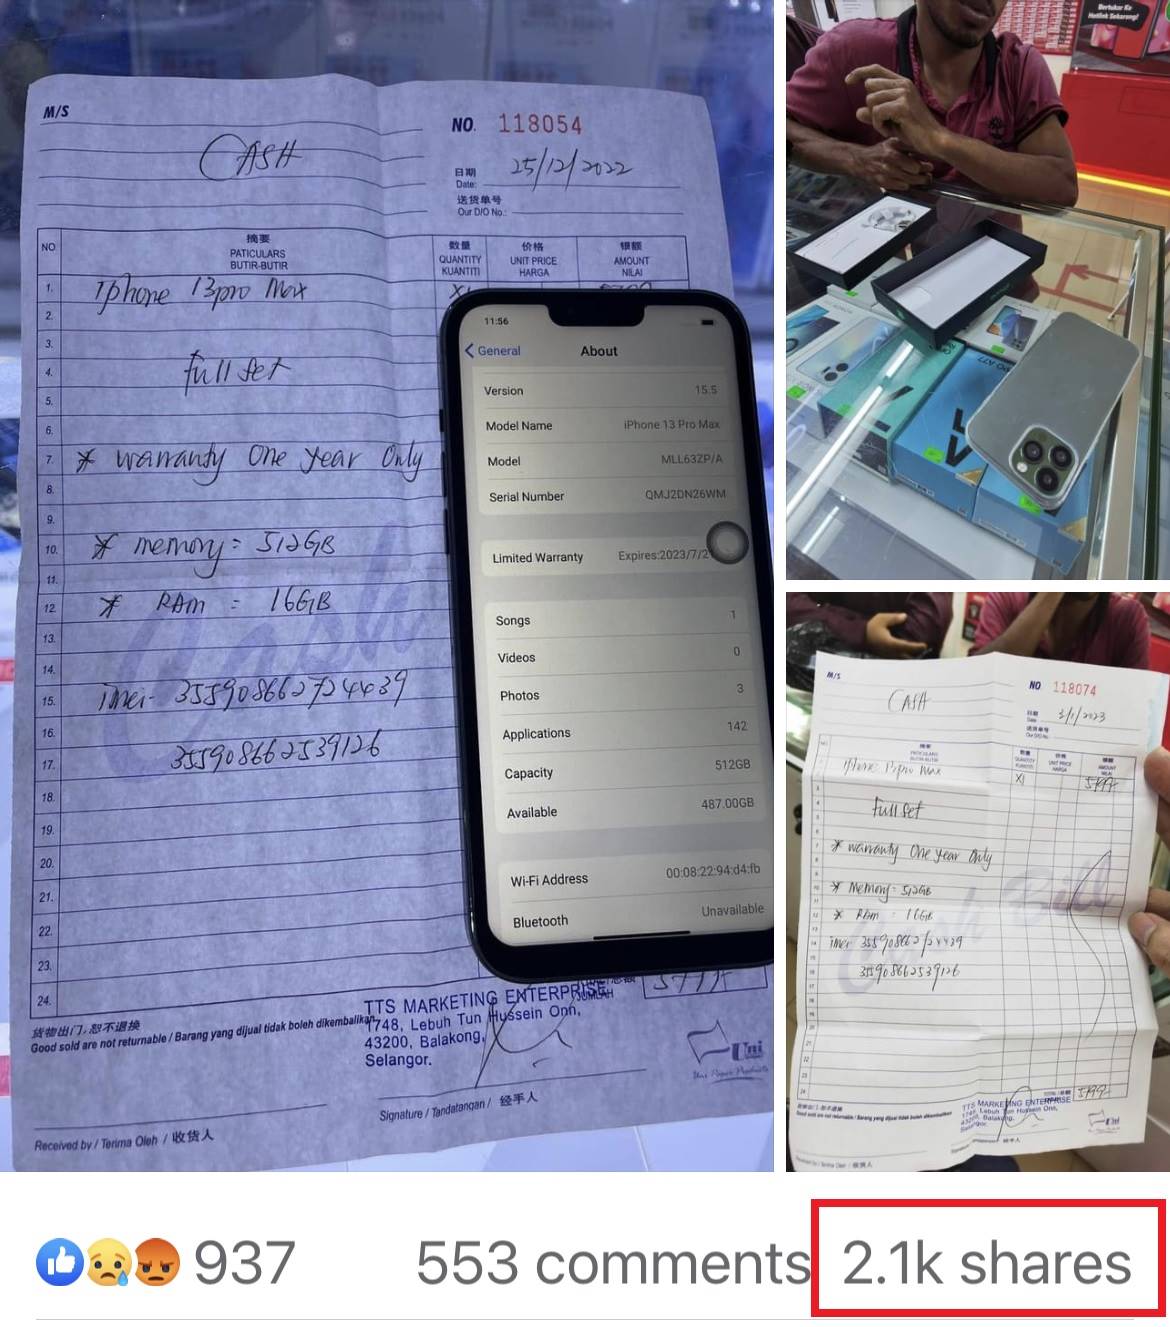 M/S
CASH
NO. 118054
日期
Date: 25/12/2022
送货单号
Our D/O No.:
NO 摘要 PATICULARS BUTIR-BUTIR 数量 QUANTITY KUANTITI 价格 UNIT PRICE HARGA 银额 AMOUNT NILAI
1. Iphone 13pro Max X1
2.
3.
4. full set
5.
6.
7. * warranty One Year Only
8.
9.
10. * memory = 512GB
11.
12. * RAM = 16GB
13.
14.
15. imei- 355908662724439
16.
17. 355908662539126
18.
19.
20.
21.
22.
23.
24.
货物出门,恕不退换
Good sold are not returnable / Barang yang dijual tidak boleh dikembalikan.
TTS MARKETING ENTERPRISE
1748, Lebuh Tun Hussein Onn,
43200, Balakong,
Selangor.
JUMLAH
Uni
Signature / Tandatangan / 经手人
Received by / Terima Oleh / 收货人
11:56
General About
Version 15.5
Model Name iPhone 13 Pro Max
Model MLL63ZP/A
Serial Number QMJ2DN26WM
Limited Warranty Expires:2023/7/2
Songs 1
Videos 0
Photos 3
Applications 142
Capacity 512GB
Available 487.00GB
Wi-Fi Address 00:08:22:94:d4:fb
Bluetooth Unavailable
Bertukar Ke
Hotlink Sekarang!
OPPO A77
M/S
CASH
NO. 118074
日期
Date 3/1/2023
送货单号
Our D/O No.:
摘要 数量 价格 银额
QUANTITY UNIT PRICE AMOUNT
KUANTITI HARGA NILAI
iphone 13pro Max X1 5799
full set
* warranty One Year Only
* Memory = 512GB
* RAM = 16GB
imei 355908662724439
355908662539126
Cash Bill
5799
TTS MARKETING ENTERPRISE
1748, Lebuh Tun Hussein Onn,
43200, Balakong,
Selangor.
Uni
937 553 comments 2.1k shares